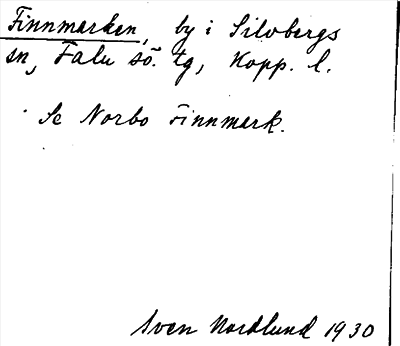 Finnmarken, by i Silvbergs
sn, Falu sö. tg, Kopp. l.
Se Norbo Finnmark.
Sven Nordlund 1930